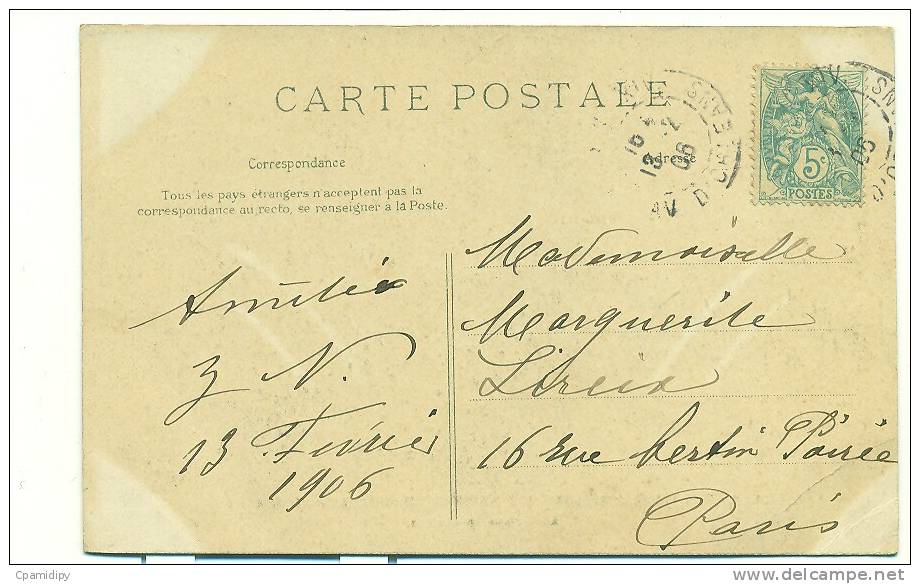 CARTE POSTALE
Correspondance
Tous les pays étrangers n'acceptent pas la
correspondance au recto, se renseigner à la Poste.
Adresse
5c
POSTES
AV D'ORLEANS
13 2
06
Amitiés
13 Février
1906
Mademoiselle
Marguerite
16 rue bertin Poirée
Paris
Cpamidipy
www.delcampe.net